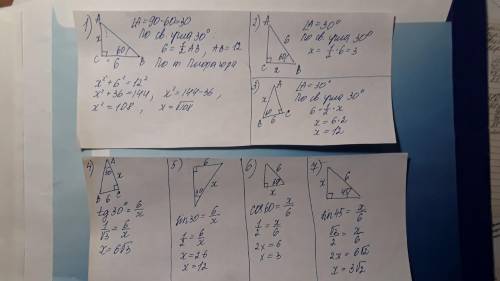 1)
A
x
60°
C
6
B
∠A=90-60=30
По св. угла 30°
6=½AB, AB=12
По т. Пифагора
x²+6²=12²
x²+36=144, x²=144-36,
x²=108, x=√108
2)
A
6
x
60°
C
B
∠A=30°
По св. угла 30°
x=½·6=3
3)
A
x
60°
B
6
C
∠A=30°
По св. угла 30°
6=½·x
x=6·2
x=12
4)
A
30°
x
B
6
C
tg30=6/x
1/√3=6/x
x=6√3
5)
6
x
sin30=6/x
1/2=6/x
x=2·6
x=12
6)
6
60°
x
cos60=x/6
1/2=x/6
2x=6
x=3
7)
6
x
45°
sin45=x/6
√2/2=x/6
2x=6√2
x=3√2